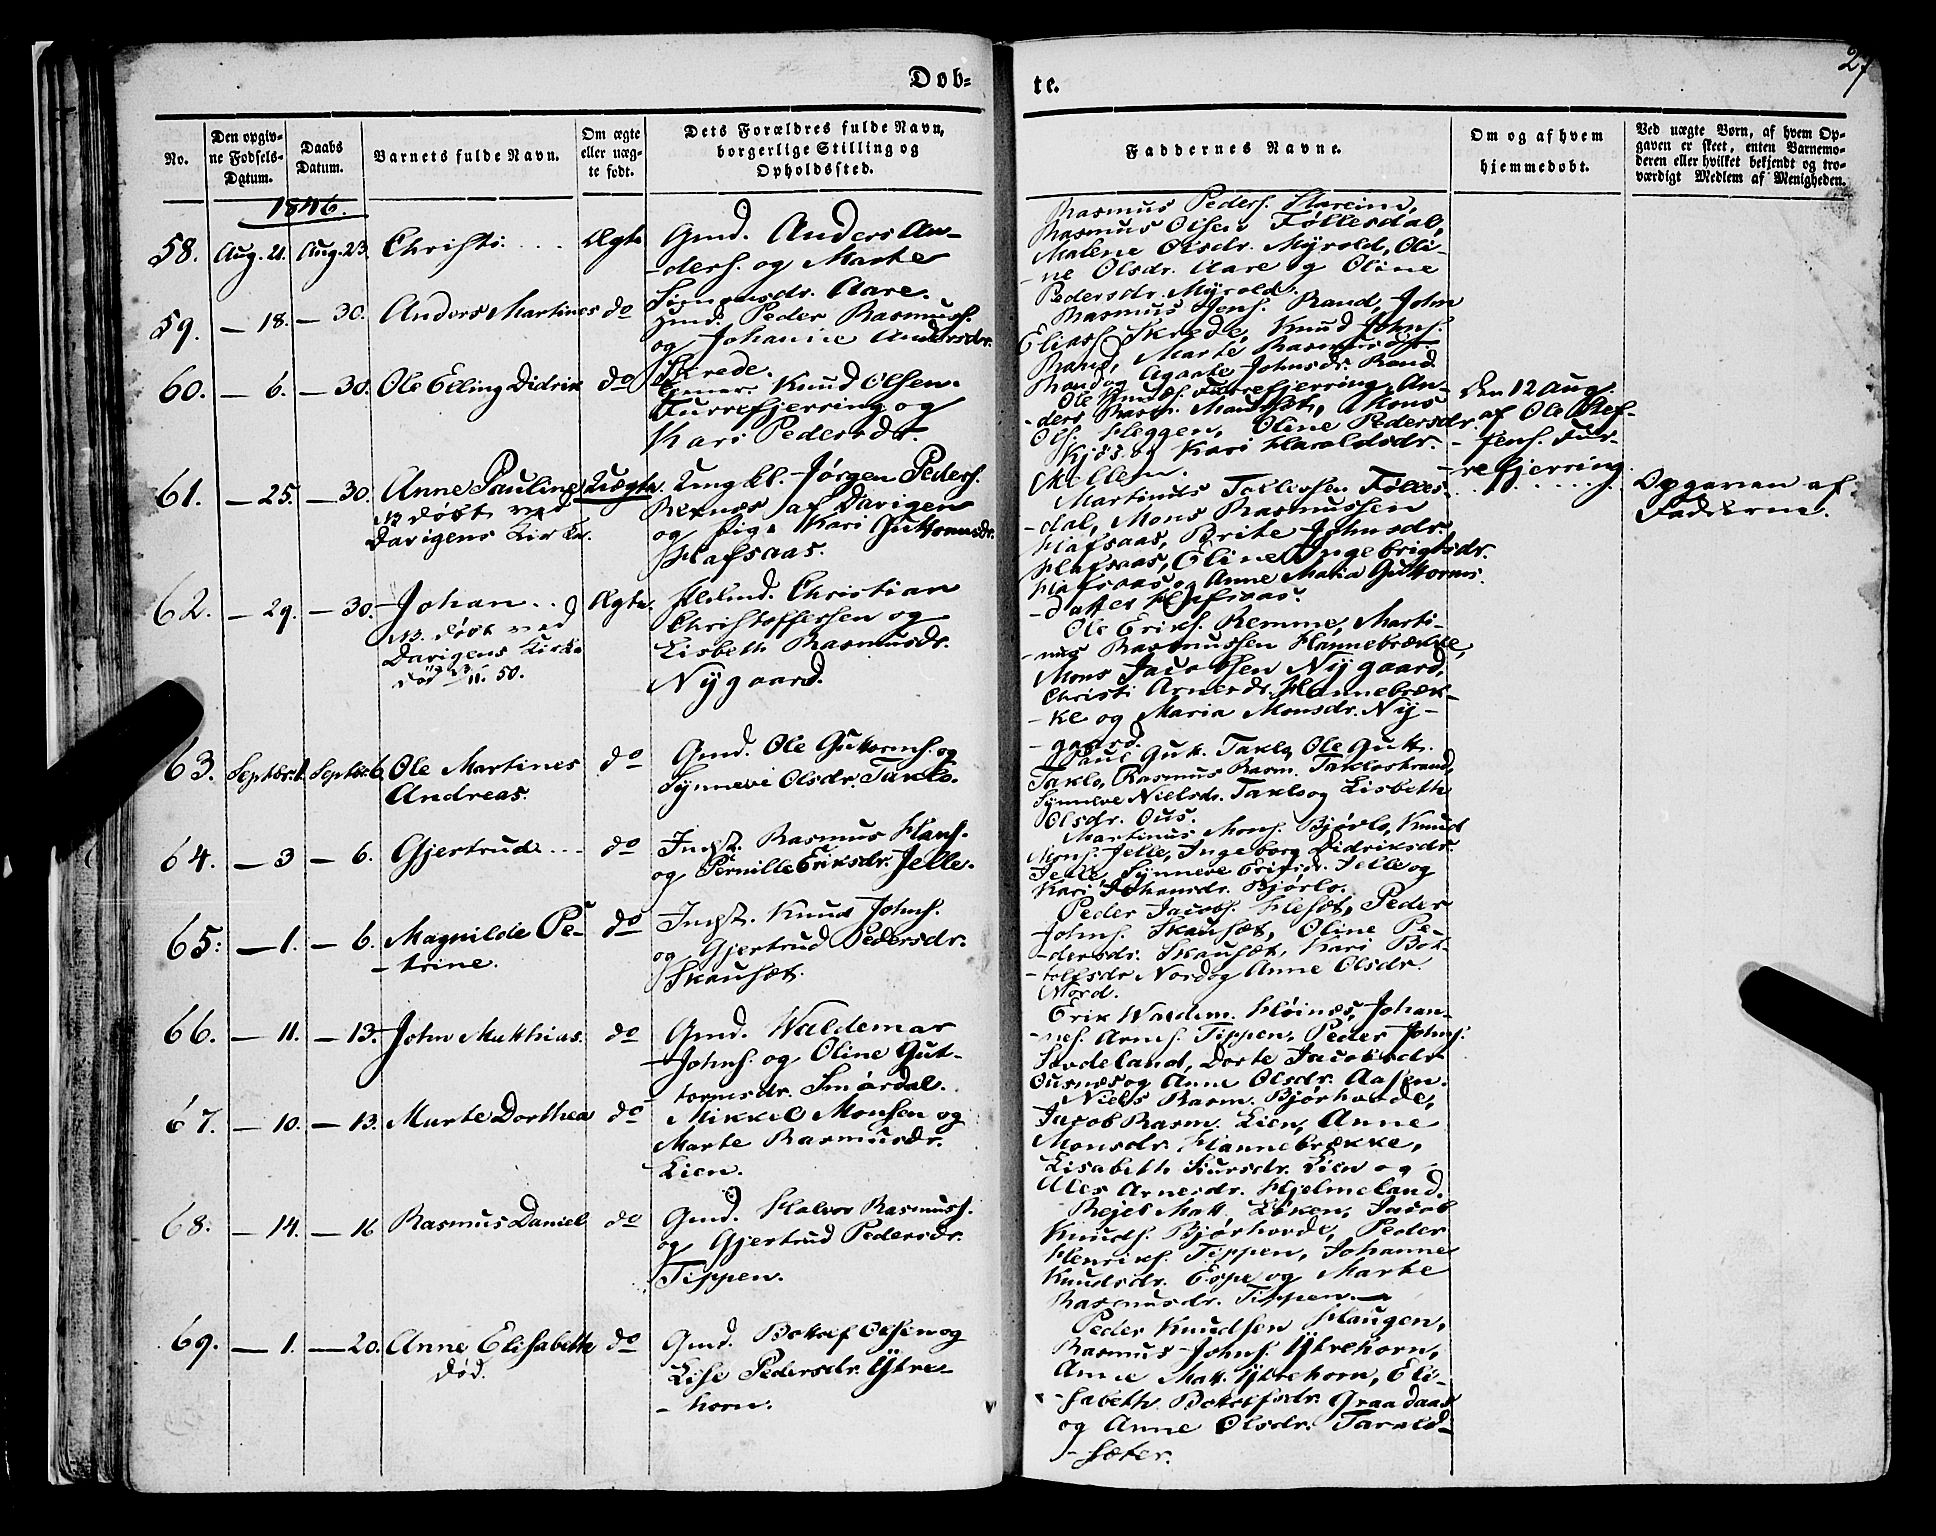 Døb-
te.
27
No.
Den opgiv-
ne Fødsels-
Datum.
Daabs
Datum.
Barnets fulde Navn.
Om ægte
eller uæg-
te født.
Dets Forældres fulde Navn,
borgerlige Stilling og
Opholdssted.
Faddernes Navne.
Om og af hvem
hjemmedøbt.
Ved uægte Børn, af hvem Op-
gaven er skeet, enten Barnemo-
deren eller hvilket bekjendt og tro-
værdigt Medlem af Menigheden.
1846.
58. Aug. 21. Aug. 23. Christi .... Ægte
Gmd. Anders An-
-ders. og Marte
Simonsdr. Aare.
Rasmus Peders. Hareim,
Rasmus Olsen Føllesdal,
Malene Olsdr. Myrold, Oli-
-ne Olsdr. Aare og Oline
Pedersdr. Myrold.
59. — 18. — 30. Anders Martines do
Gmd. Peder Rasmuss.
og Johanne Andersdr.
Skrede.
Rasmus Jens. Rand, John
Elias. Skrede, Knud Johns.
Rand, Marte Rasmusdr.
Rand og Agaate Johnsdr. Rand
60. — 6. — 30. Ole Elling Didrik do
Knud Olsen
Furrefjerring og
Kari Pedersdr.
Ole Knuds. Furrefjerring, An-
-ders Rasm. Maurset, Mons
Ols. Heggen, Oline Pedersdr.
og Kari Haraldsdr.
Mellem.
Den 12 Aug.
af Ole Ref-
-Jens. Fur-
-refjerring.
61. — 25. — 30. Anne Pauline
NB døbt ved
Davigens Kirke.
Uægte.
Ungkl. Jørgen Peders.
af Davigen
og Pige Kari Guttormsdr.
Hafsaas.
Martinus Tollefsen Følles-
-dal, Mons Rasmussen
Hafsaas, Brite Johnsdr.
Hafsaas, Eline Ingebrigtsdr.
Hafsaas og Anne Maria Guttorms-
-datter Hafsaas.
Opgaven af
Fadderne.
62. — 29. — 30. Johan ...
NB. døbt ved
Davigens Kirke
død 11. 50.
Ægte.
Christian
Christoffersen og
Lisbeth Rasmusdr.
Nygaard.
Ole Eriks. Remme, Marti-
-nus Rasmussen Hannebrække,
Mons Jacobsen Nygaard,
Christi Arnesdr. Hannebræk-
-ke og Maria Monsdr. Ny-
-gaard.
63. Septbr. 1. Septbr. 6. Ole Martines
Andreas.
do
Gmd. Ole Guttorms. og
Synneve Olsdr. Taklo.
Paul Gutt. Taklo, Ole Gutt.
Taklo, Rasmus Rasm. Taklostrand,
Synneve Nielsdr. Taklo og Lisbeth
Olsdr. Ous.
64. — 3 — 6. Gjertrud ... do
Indst. Rasmus Hans.
og Pernille Eriksdr. Jelle.
Martinus Mons. Bjørlo, Knud
Mons. Jelle, Ingeborg Didriksdr.
Jelle, Synneve Eriksdr. Jelle og
Kari Johansdr. Bjørlo.
65. — 1. — 6. Magnilde Pe-
-trine.
do
Indst. Knud Johns.
og Gjertrud Pedersdr.
Skausæt.
Peder Jacobs. Hesæt, Peder
Johns. Skausæt, Oline Pe-
-dersdr. Skausæt, Kari Bot-
-tolfsdr. Nord og Anne Olsdr.
Nord.
66. — 11. — 13. John Matthias. do
Gmd. Waldemar
Johns. og Oline Gut-
tormsdr. Smørdal.
Erik Waldem. Høinæs, Johan-
-nes. Arns. Tippen, Peder Johns.
Sødeland, Dorte Jacobsdr.
Ousnæs og Anne Olsdr. Aasen.
67. — 10. — 13. Marte Dorthea do
Mikkel Monsen og
Marte Rasmusdr.
Lien.
Niels Rasm. Bjørhovde,
Jacob Rasm. Lien, Anne
Monsdr. Hannebrække,
Lisabeth Siursdr. Lien og
Ales Arnesdr. Hjelmeland.
68. — 14. — 16 Rasmus Daniel do
Gmd. Halvor Rasmuss.
og Gjertrud Pedersdr.
Tippen.
Rejel Matt. Løken, Jacob
Knuds. Bjørhovde, Peder
Henriks. Tippen, Johanne
Knudsdr. Espe og Marte
Rasmusdr. Tippen.
69. — 1. — 20. Anne Elisabeth
død.
do
Gmd. Bottolf Olsen og
Lise Pedersdr. Ytre-
-horn.
Peder Knudsen Haugen,
Rasmus Johns. Ytrehorn,
Anne Matt. Ytrehorn, Eli-
-sabeth Bottolfsdr. Graadaas
og Anne Olsdr. Tarald-
-sæter.